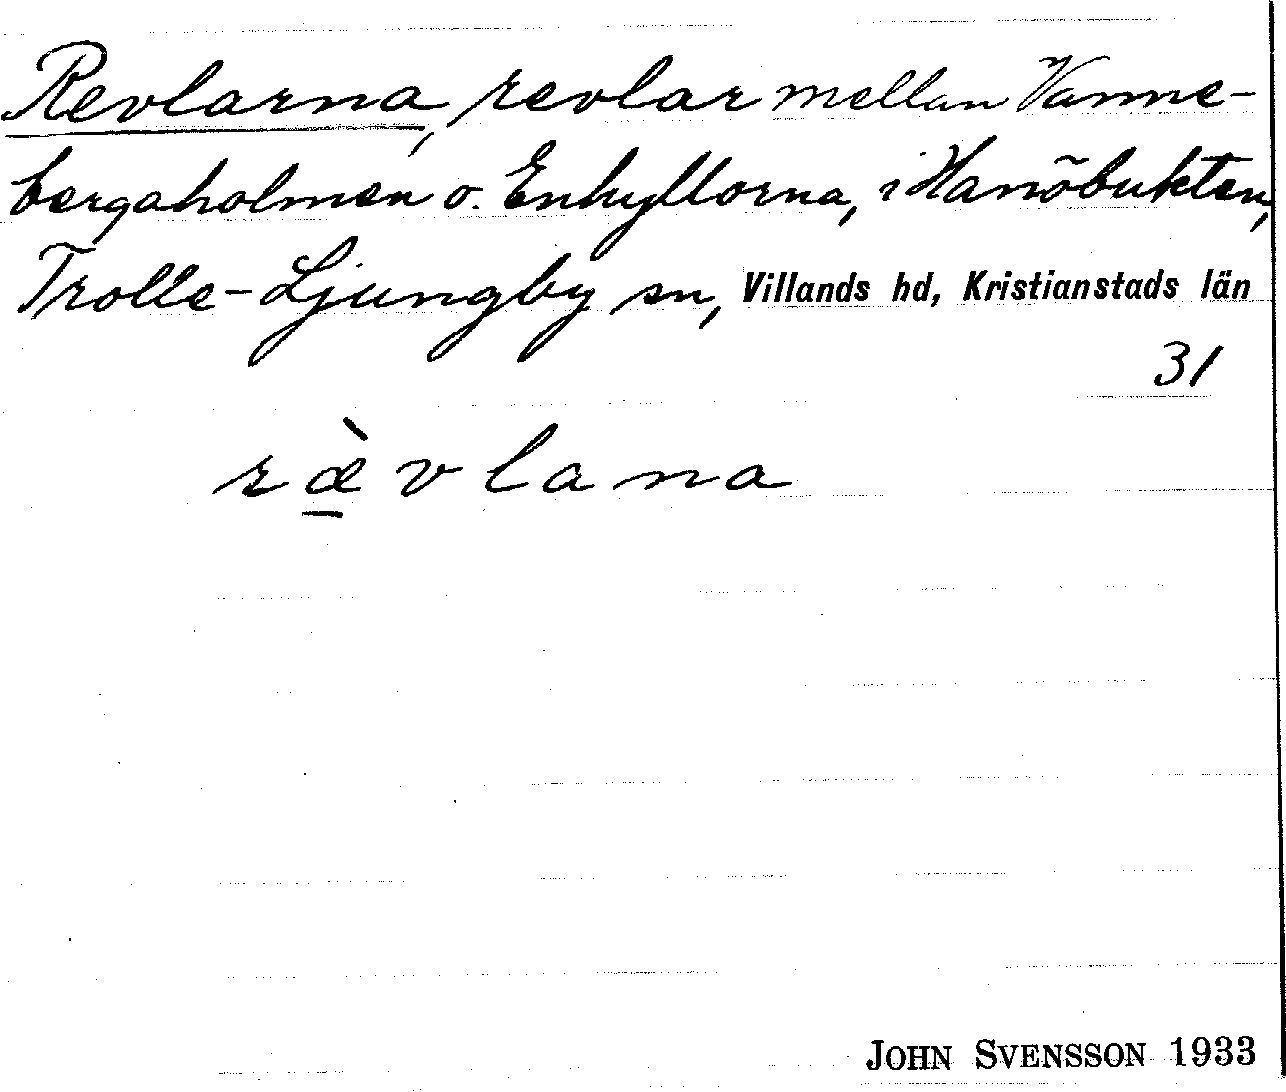 Revlarna, revlar mellan Vanne-
bergaholmen o. Enhyllorna, i Hanöbukten,
Trolle-Ljungby sn, Villands hd, Kristianstads län
31
ræ̀vlana
JOHN SVENSSON 1933